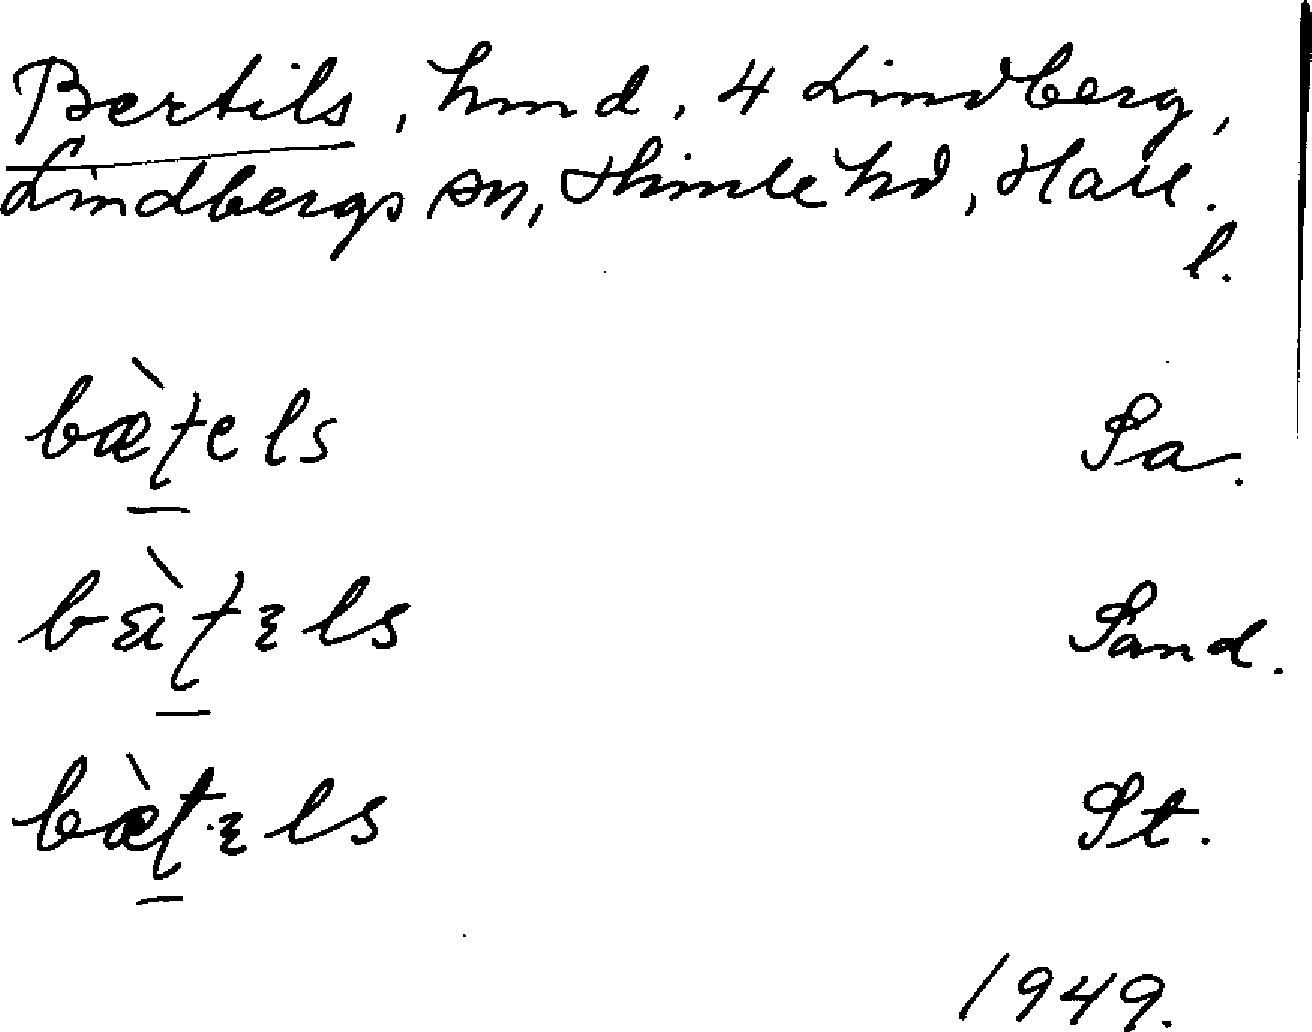 Bertils, hmd. 4 Lindberg,
Lindbergs sn, Himle hd, Hall.
l.
bæ̀ʈels Sa.
Sand.
St.
1949.